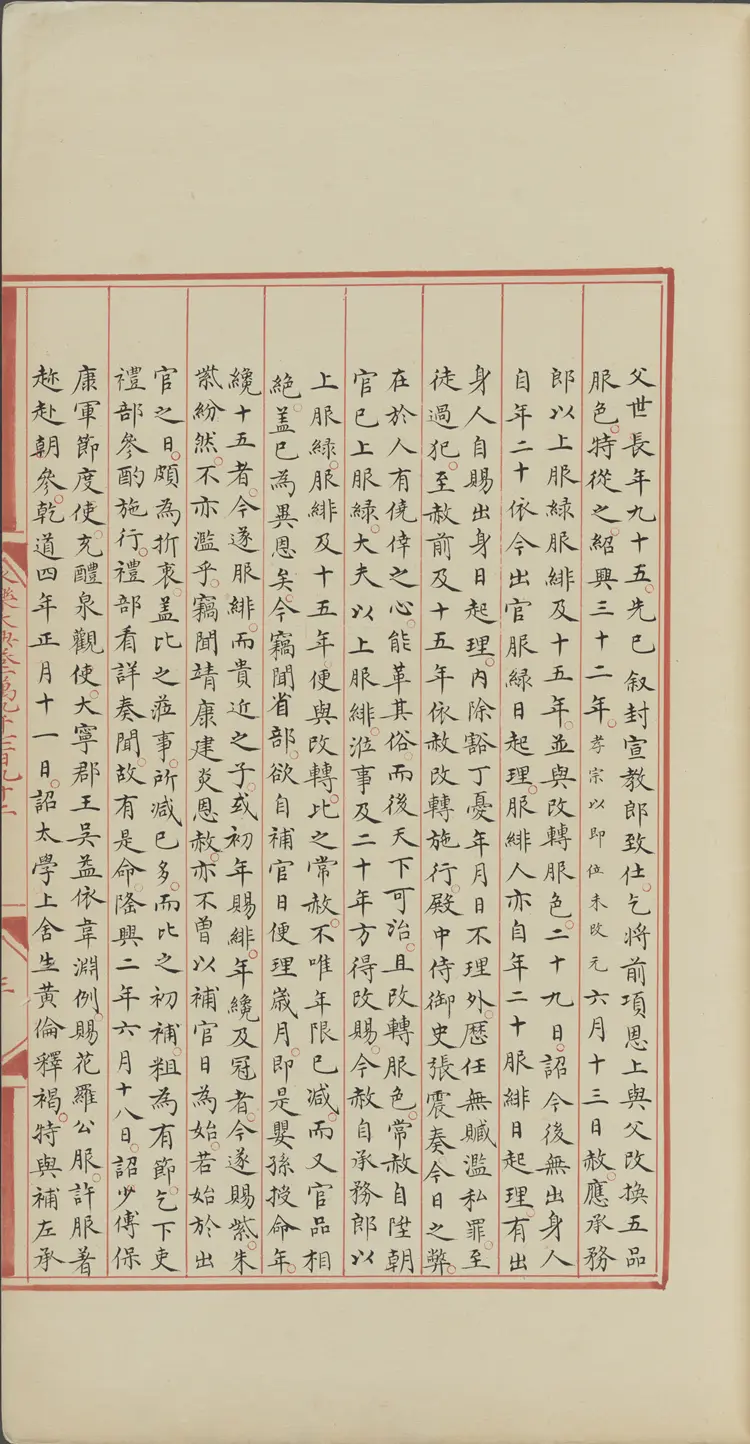 父世長年九十五先已叙封宣教郎致仕乞將前項恩上與父改換五品
服色特從之紹興三十二年孝宗以即位未改元六月十三日赦應承務
郎以上服緑服緋及十五年並與改轉服色二十九日詔今後無出身人
自年二十依今出官服緑日起理服緋人亦自年二十服緋日起理有出
身人自賜出身日起理內除豁丁憂年月日不理外歷任無贓濫私罪至
徒過犯至赦前及十五年依赦改轉施行殿中侍御史張震奏今日之弊
在於人有僥倖之心能革其俗而後天下可治且改轉服色常赦自陞朝
官已上服緑大夫以上服緋涖事及二十年方得改賜今赦自承務郎以
上服緑服緋及十五年便與改轉比之常赦不唯年限已減而又官品相
絶盖已為異恩矣今竊聞省部欲自補官日便理歲月即是嬰孫授命年
纔十五者今遂服緋而貴近之子或初年賜緋年纔及冠者今遂賜紫朱
紫紛然不亦濫乎竊聞靖康建炎恩赦亦不曾以補官日為始若始於出
官之日頗為折衷盖比之涖事所減已多而比之初補粗為有節乞下吏
禮部參酌施行禮部看詳奏聞故有是命隆興二年六月十八日詔少傅保
康軍節度使充醴泉觀使大寧郡王吳益依韋淵例賜花羅公服許服着
趂赴朝參乾道四年正月十一日詔太學上舍生黃倫釋褐特與補左承